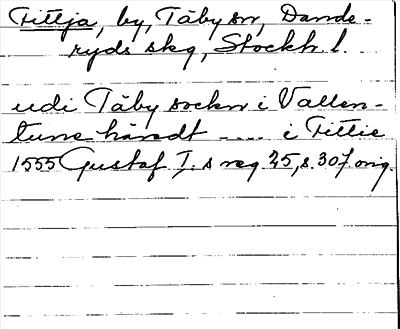 Tittja, by, Täby sn, Dande-
ryds skg, Stockh. l.
udi Täby sockn i Vallen-
tuna häredt .... i Tittie
1555 Gustaf I:s reg. 25, s. 307 orig.